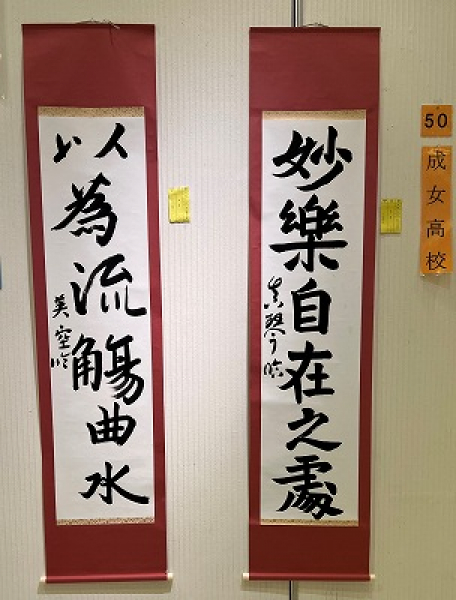 50
成女高校
妙樂自在之處
以為流觴曲水
美空臨